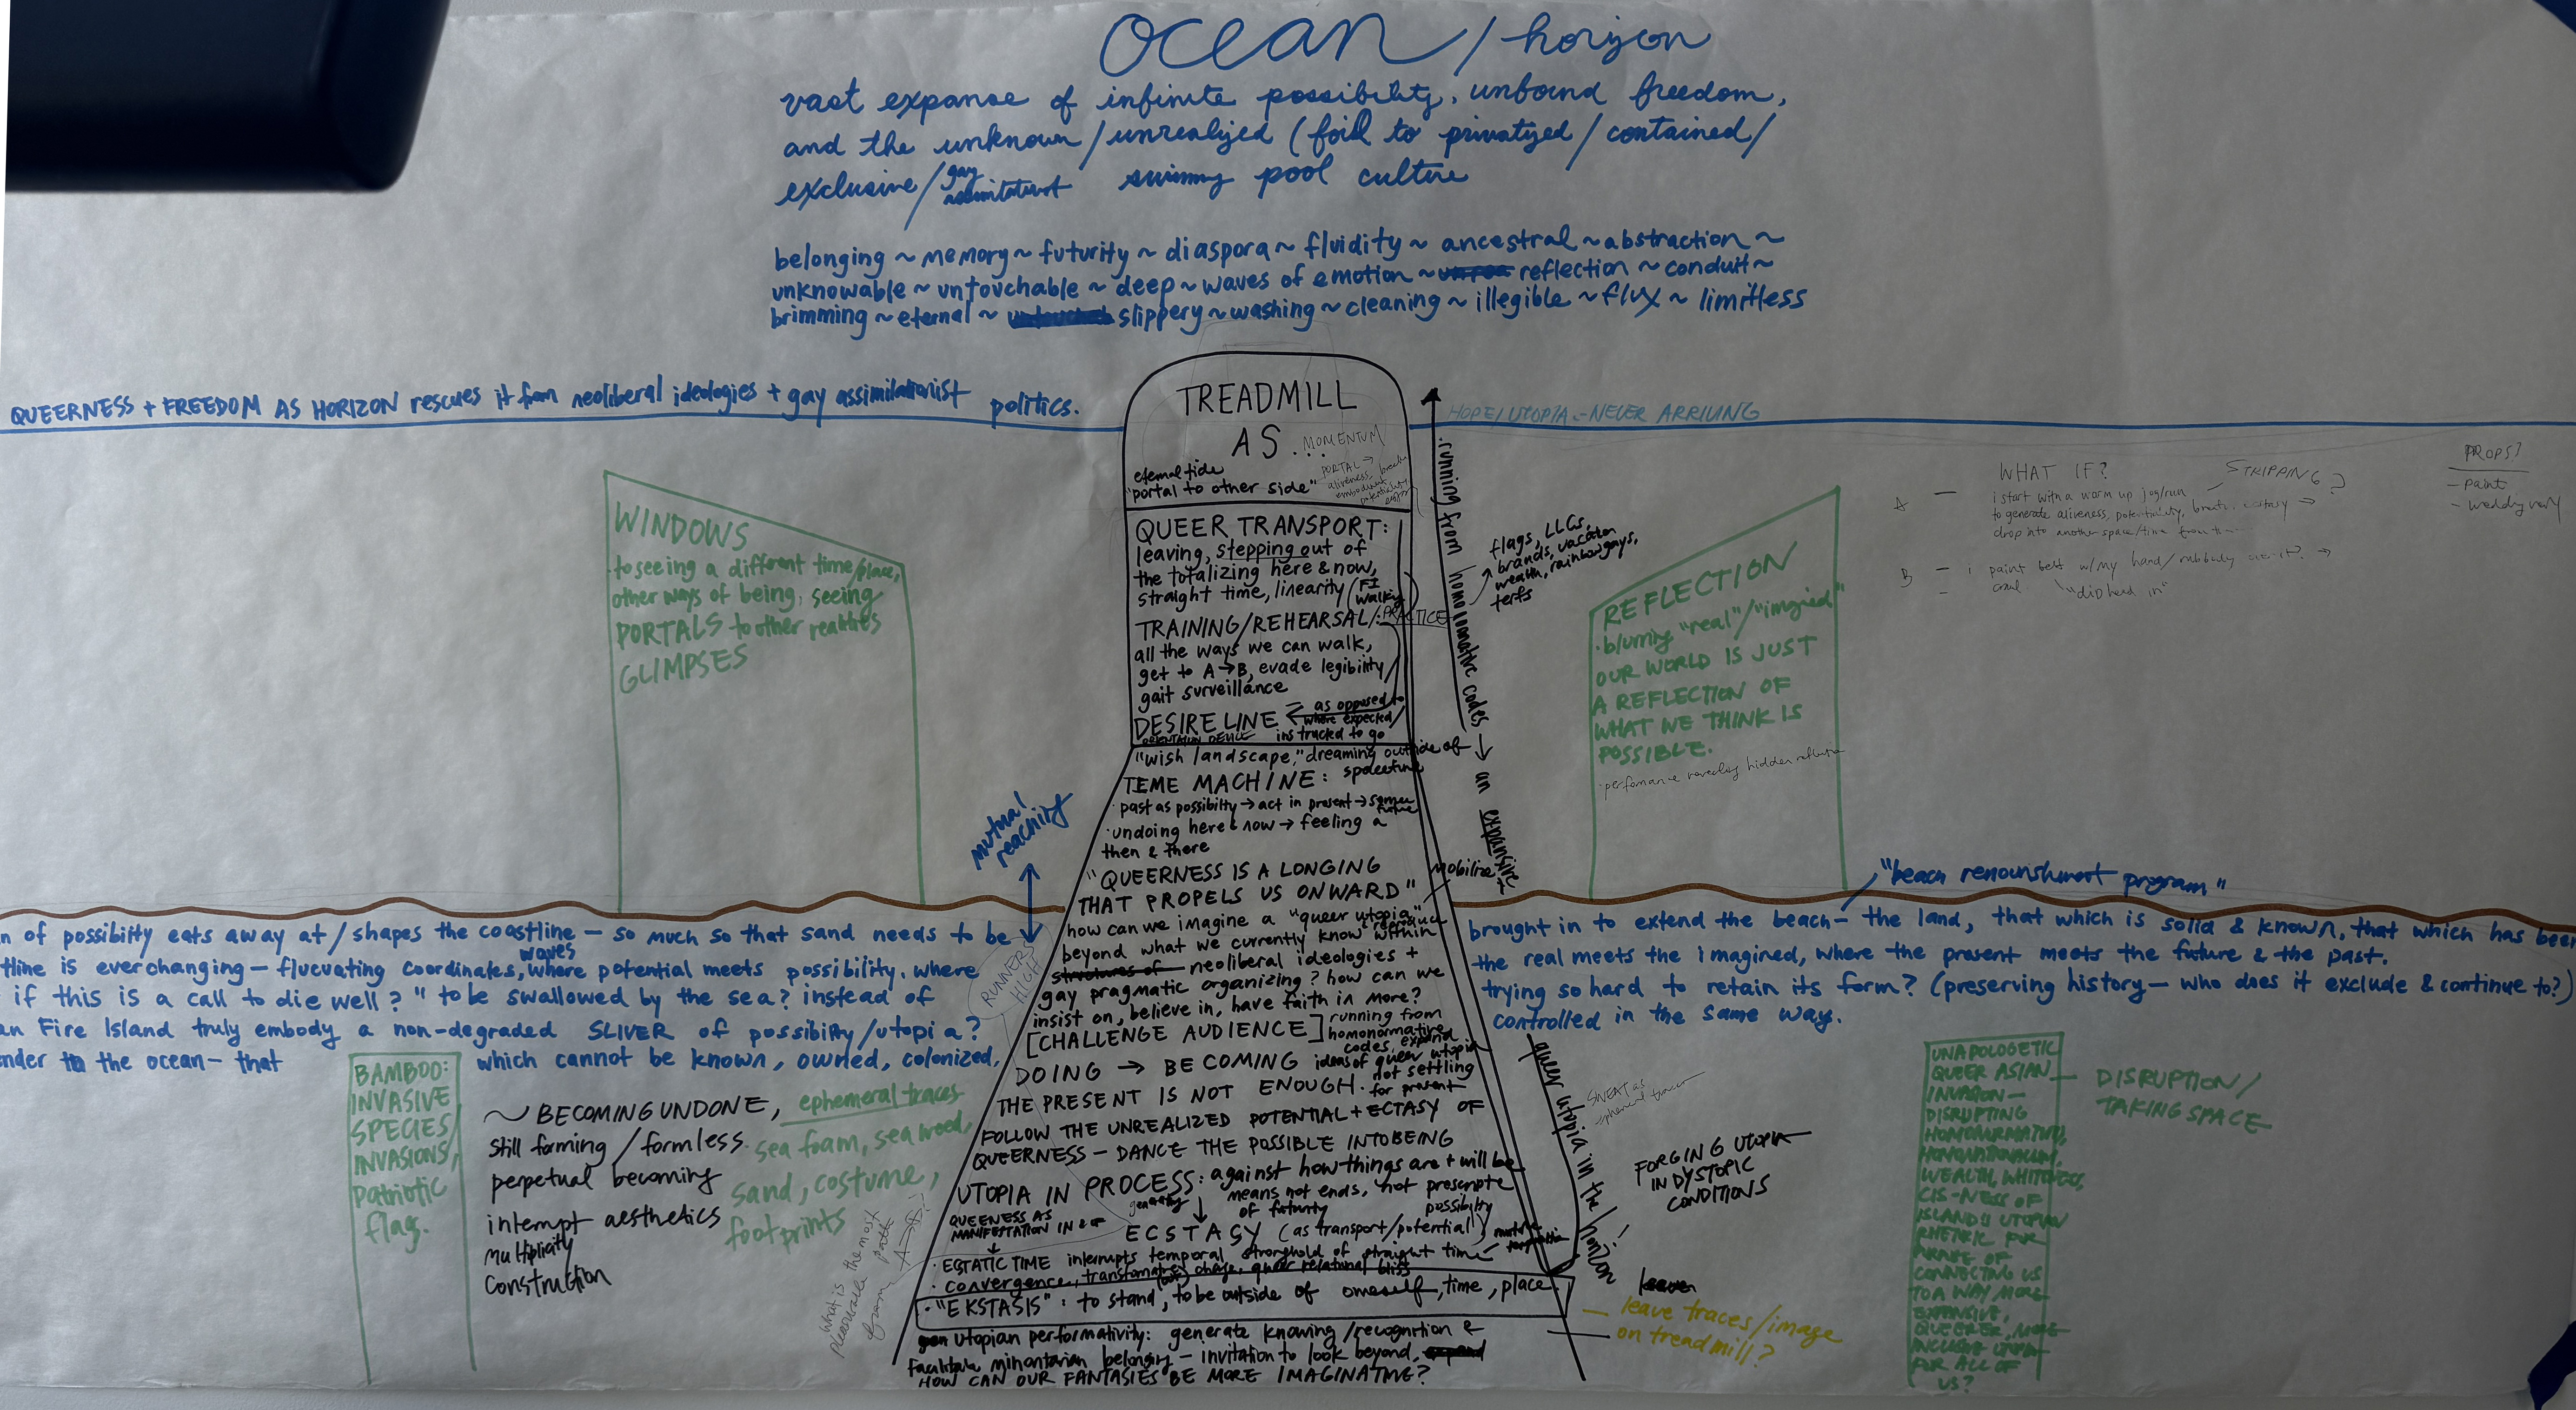 ocean / horizon
vast expanse of infinite possibility, unbound freedom,
and the unknown/unrealized (foil to privatized/contained/
exclusive/gay assimilationist swimmy pool culture
belonging ~ memory ~ futurity ~ diaspora ~ fluidity ~ ancestral ~ abstraction ~
unknowable ~ untouchable ~ deep ~ waves of emotion ~ reflection ~ conduit ~
brimming ~ eternal ~ slippery ~ washing ~ cleaning ~ illegible ~ flux ~ limitless
QUEERNESS + FREEDOM AS HORIZON rescues it from neoliberal ideologies + gay assimilationist politics.
HOPE/UTOPIA - NEVER ARRIVING
TREADMILL
AS...
MOMENTUM
eternal tide
"portal to other side"
PORTAL →
aliveness, breath
embodiment
potentiality
QUEER TRANSPORT:
leaving, stepping out of
the totalizing here & now,
straight time, linearity (FI walky
TRAINING/REHEARSAL/: PRACTICE
all the ways we can walk,
get to A→B, evade legibility
gait surveillance
DESIRE LINE
ORIENTATION DEVICE
= as opposed to
where expected/
instructed to go
"wish landscape," dreaming outside of
TIME MACHINE: spacetime
· past as possibilty → act in present →
· undoing here & now → feeling a
then & there
"QUEERNESS IS A LONGING
THAT PROPELS US ONWARD"
how can we imagine a "queer utopia"
beyond what we currently know within
structures of neoliberal ideologies +
gay pragmatic organizing? how can we
insist on, believe in, have faith in more?
[CHALLENGE AUDIENCE]
running from
homonormative
codes, expand
ideas of queer utopia
not settling
for present
DOING → BECOMING
THE PRESENT IS NOT ENOUGH.
FOLLOW THE UNREALIZED POTENTIAL + ECTASY OF
QUEERNESS - DANCE THE POSSIBLE INTO BEING
UTOPIA IN PROCESS: against how things are + will be
means not ends, not prescripte
of futurity
possibility
QUEENESS AS
MANIFESTATION IN & OF
ECSTASY (as transport/potential)
· ECSTATIC TIME interrupts temporal stronghold of straight time
· convergence, change, queer relational bliss
· "EKSTASIS": to stand, to be outside of oneself, time, place
utopian performativity: generate knowing/recognition &
facilitate minoritarian belonging - invitation to look beyond,
HOW CAN OUR FANTASIES BE MORE IMAGINATIVE?
· running from homonormative codes → an expansive +
mobilize
queer utopia in the horizon
flags, LLCs,
brands, vacation
wealth, rainbow gays,
terfs
WINDOWS
· to seeing a different time/place,
other ways of being, seeing
PORTALS to other realities
GLIMPSES
REFLECTION
· blurring "real"/"imagined"
OUR WORLD IS JUST
A REFLECTION OF
WHAT WE THINK IS
POSSIBLE.
· performance revealing hidden reflection
WHAT IF?
STRIPPING?
PROPS?
- paint
A - i start with a warm up jog/run
to generate aliveness, potentiality, breath, ecstasy →
drop into another space/time from
B - i paint belt w/my hand/
- crawl "dip head in"
mutual
reaching
RUNNER'S
HIGH
"beach renourishment program"
n of possibility eats away at/shapes the coastline - so much so that sand needs to be
tline is everchanging - flucuating coordinates, waves where potential meets possibility. where
if this is a call to die well?" to be swallowed by the sea? instead of
an Fire Island truly embody a non-degraded SLIVER of possibility/utopia?
nder to the ocean - that which cannot be known, owned, colonized,
brought in to extend the beach - the land, that which is solid & known, that which has been
the real meets the imagined, where the present meets the future & the past.
trying so hard to retain its form? (preserving history - who does it exclude & continue to?)
controlled in the same way.
BAMBOO:
INVASIVE
SPECIES/
INVASIONS,
patriotic
flag.
~ BECOMING UNDONE,
still forming/formless
perpetual becoming
intempt aesthetics
multiplicity
construction
ephemeral traces
sea foam, sea weed,
sand, costume,
footprints
what is the most
pleasurable path
from A→B?
SWEAT as
ephemeral traces
FORGING UTOPIA
IN DYSTOPIC
CONDITIONS
leave
- leave traces/image
on treadmill?
UNAPOLOGETIC
QUEER ASIAN
INVASION -
DISRUPTING
HOMONORMATIVITY,
HOMONATIONALISM,
WEALTH, WHITENESS,
CIS-NESS OF
ISLAND'S UTOPIAN
RHETORIC FOR
CONNECTING US
TO A WAY MORE
EXPANSIVE,
QUEERER, MORE
INCLUSIVE UTOPIA
FOR ALL OF
US?
DISRUPTION/
TAKING SPACE